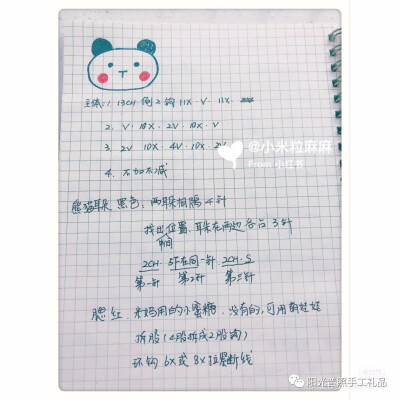 主体: 1. 13CH 倒2钩 11X·V·11X·
2. V·10X·2V·10X·V
3. 2V 10X 4V 10X 2V
4. 不加不减
熊猫耳朵 黑色, 两耳相隔4针
找出位置, 耳朵在两边各占3针
中间
2CH·5F在同一针·2CH·S
第一针 第2针 第三针
腮红: 米妈用的小蜜糖, 没有的, 可用萌娃娃
拆股(4股拆成2股钩)
环钩 6X或8X拉紧断线
@小米粒麻麻
From 小红书
阳光普照手工礼品